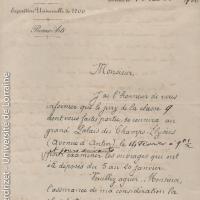 Exposition Universelle de 1900
Beaux-Arts
Monsieur,
J'ai l'honneur de vous
informer que le jury de la classe 9
dont vous faites partie, se réunira au
grand Palais des Champs-Elysées
(Avenue d'Antin), le
et jours suivants
pour examiner les ouvrages qui ont
été déposés du 5 au 20 janvier.
Veuillez agréer, Monsieur,
l'assurance de ma considération la
Université de Lorraine